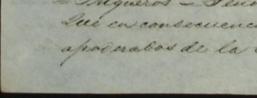 Trigueros =
Que en consecuenc
apoderados de la